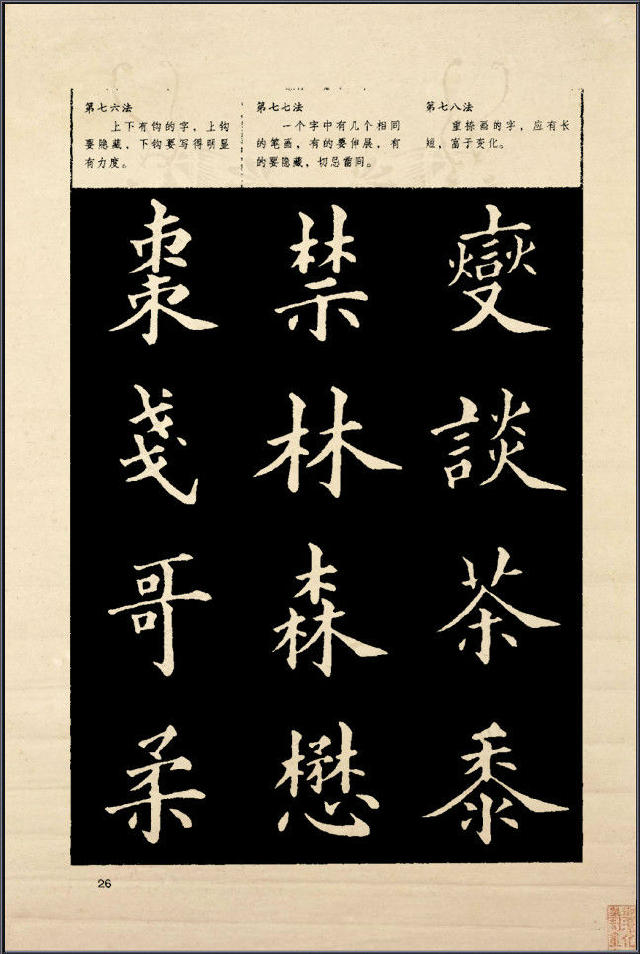 第七六法
上下有钩的字，上钩
要隐藏，下钩要写得明显
有力度。
第七七法
一个字中有几个相同
的笔画，有的要伸展，有
的要隐藏，切忌雷同。
第七八法
重捺画的字，应有长
短，富于变化。
棗 禁 變
戔 林 談
哥 森 茶
柔 懋 黍
26